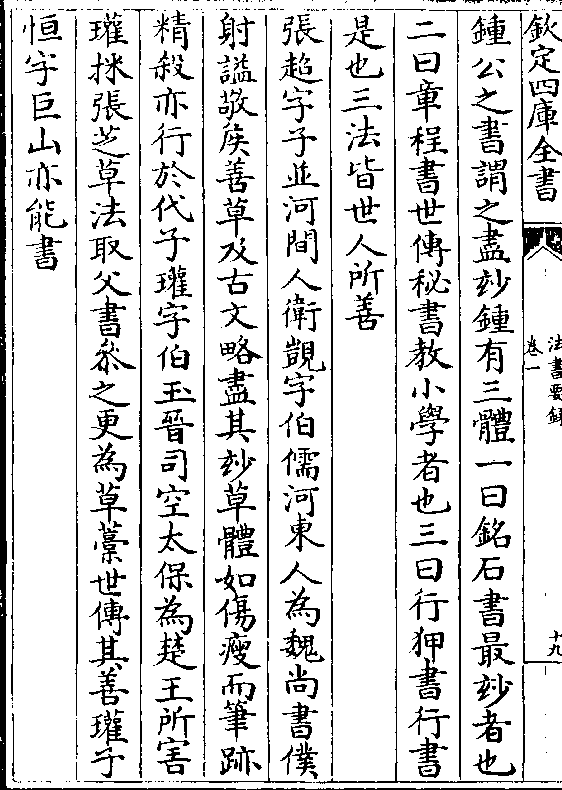 欽定四庫全書
法書要録
卷一
十九
鍾公之書謂之盡玅鍾有三體一曰銘石書最玅者也
二曰章程書世傳秘書教小學者也三曰行狎書行書
是也三法皆世人所善
張超字子並河間人衛覬字伯儒河東人為魏尚書僕
射謚敬矦善草及古文略盡其玅草體如傷瘦而筆跡
精殺亦行於代子瓘字伯玉晉司空太保為楚王所害
瓘採張芝草法取父書叅之更為草藁世傳其善瓘子
恒字巨山亦能書